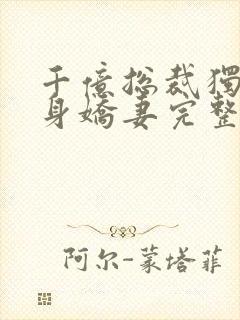 千億总裁獨
身嬌妻完整
阿尔-蒙塔菲